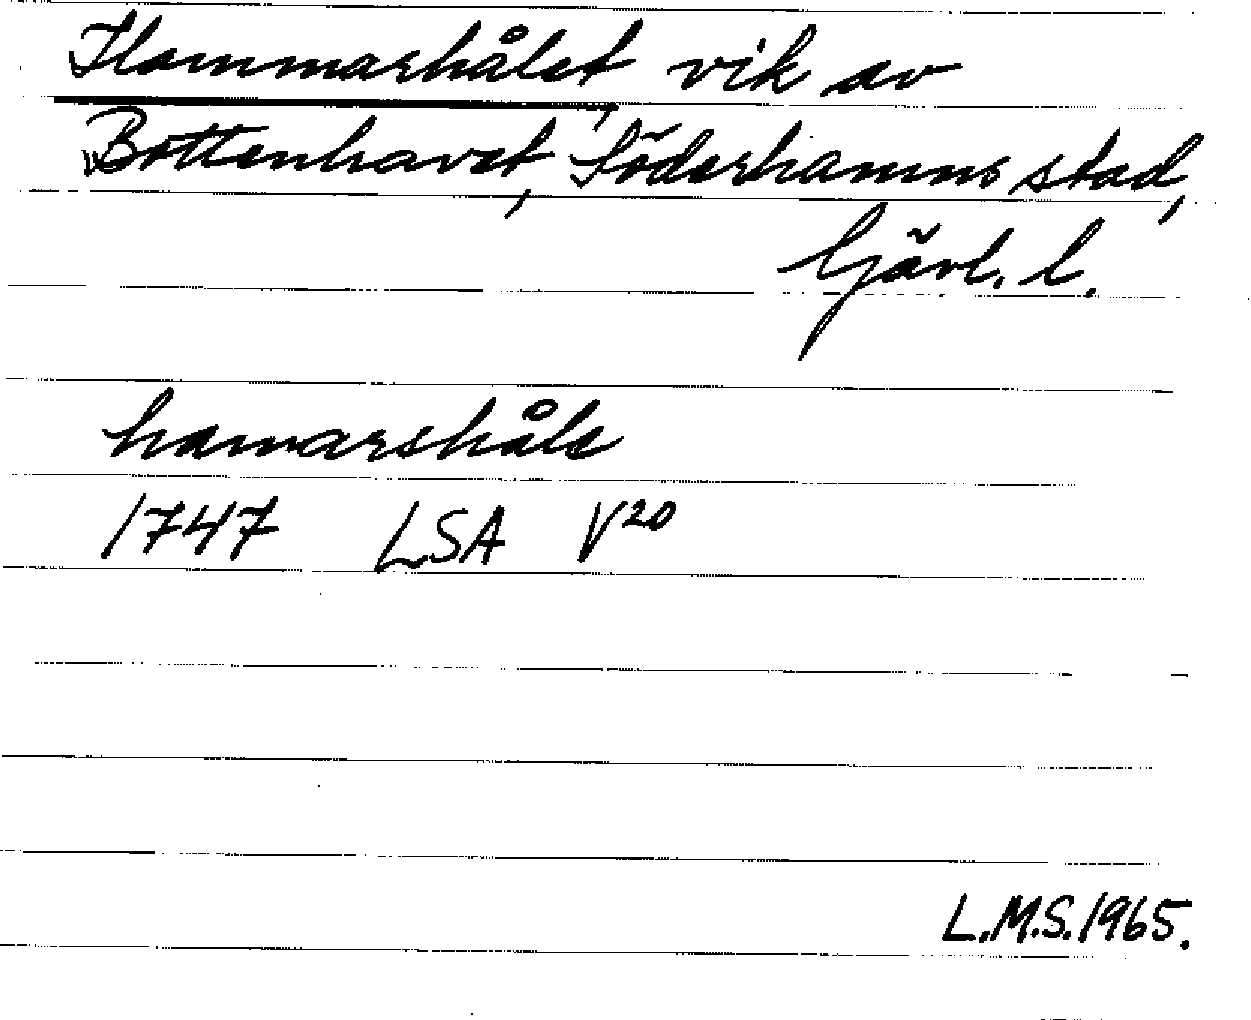 Hammarhålet, vik av
Bottenhavet, Söderhamns stad,
Gävl. l.
hamarshåle
1747 LSA V20
L.M.S. 1965.